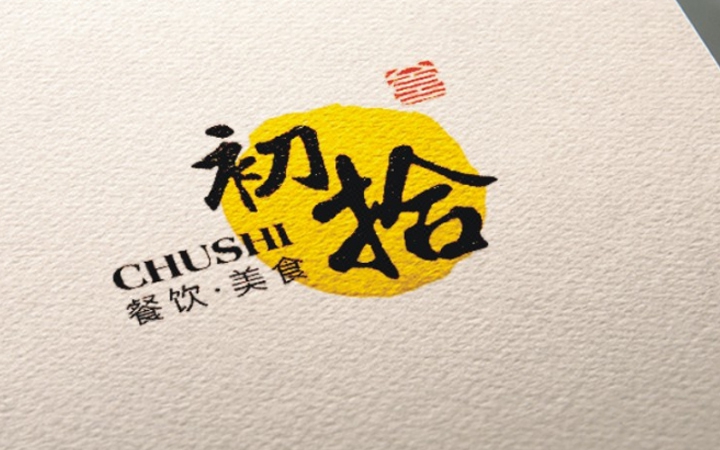 初拾
CHUSHI
餐饮·美食